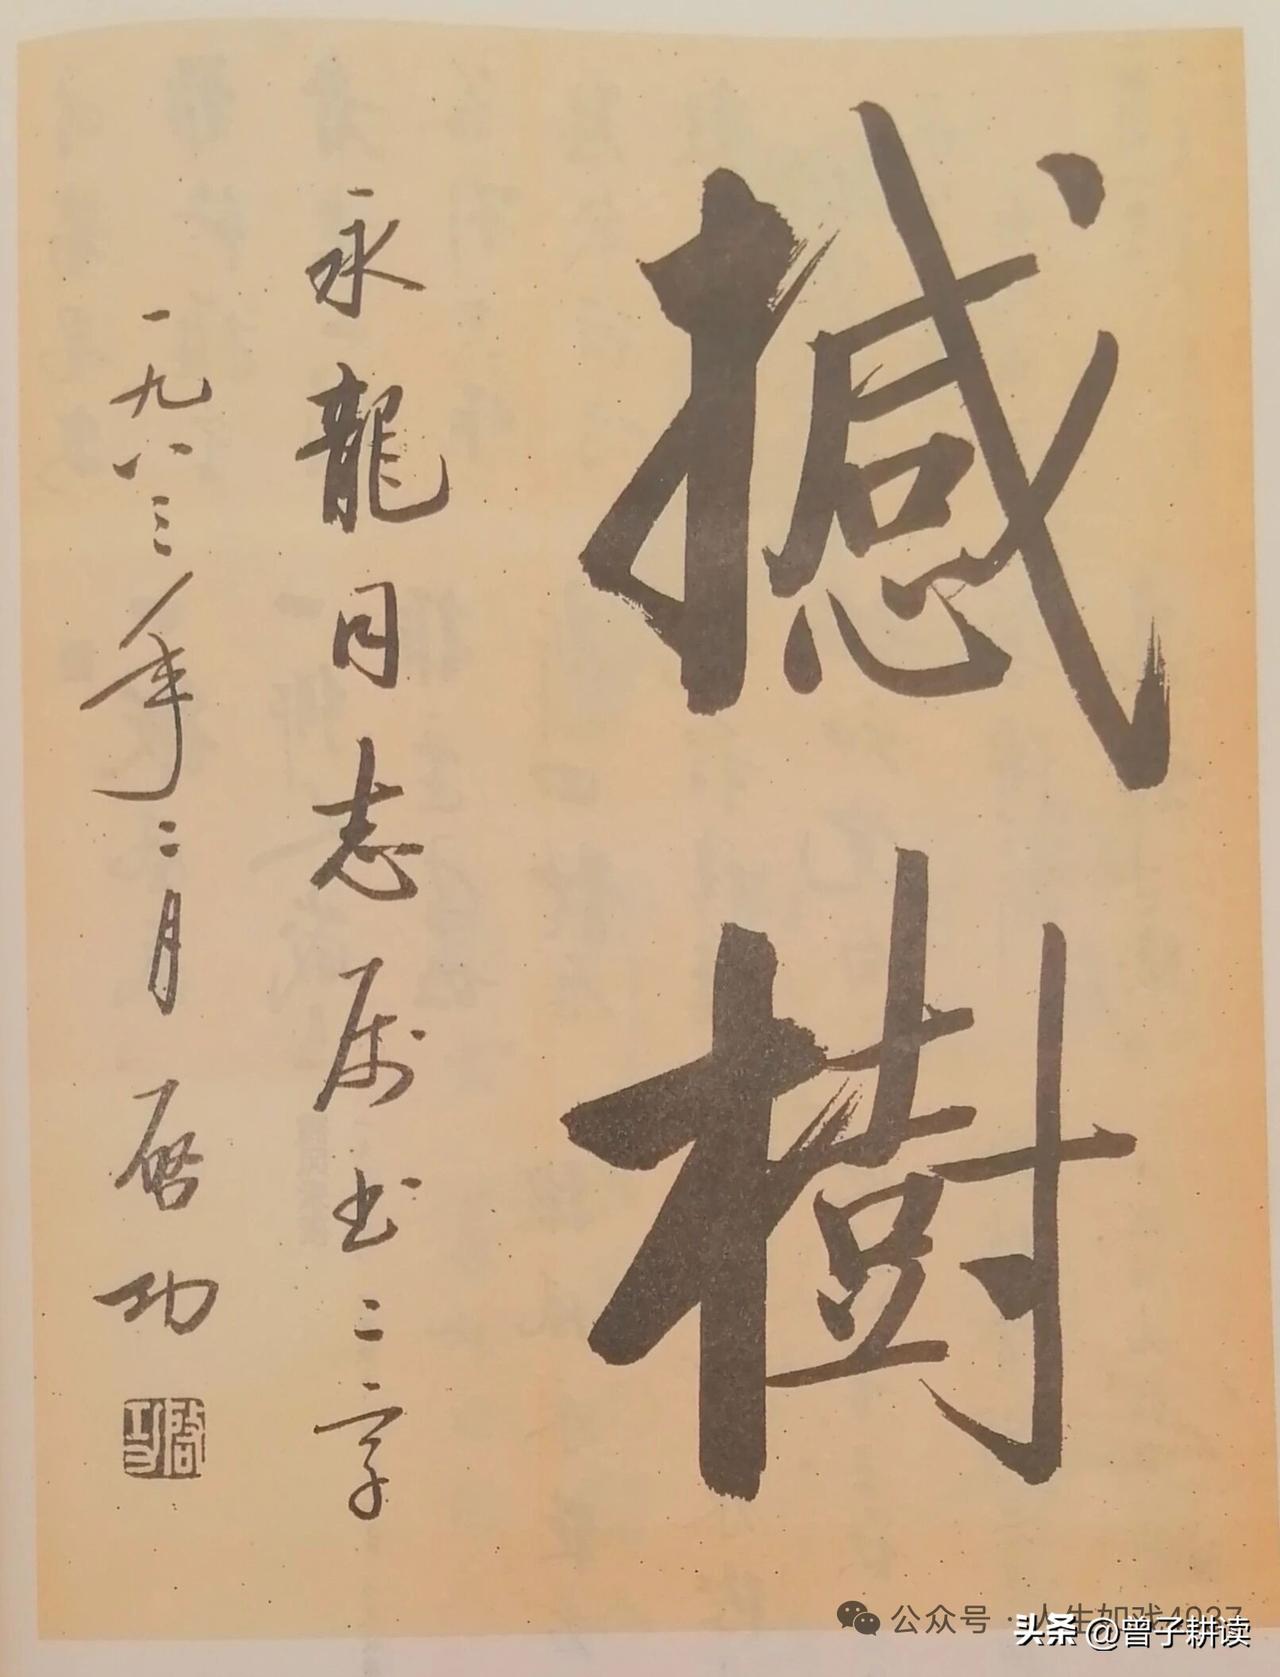 撼樹
永龍同志属书二字
一九八三年二月 启功
啟功
公众号·人生如戏4937
头条 @曾子耕读